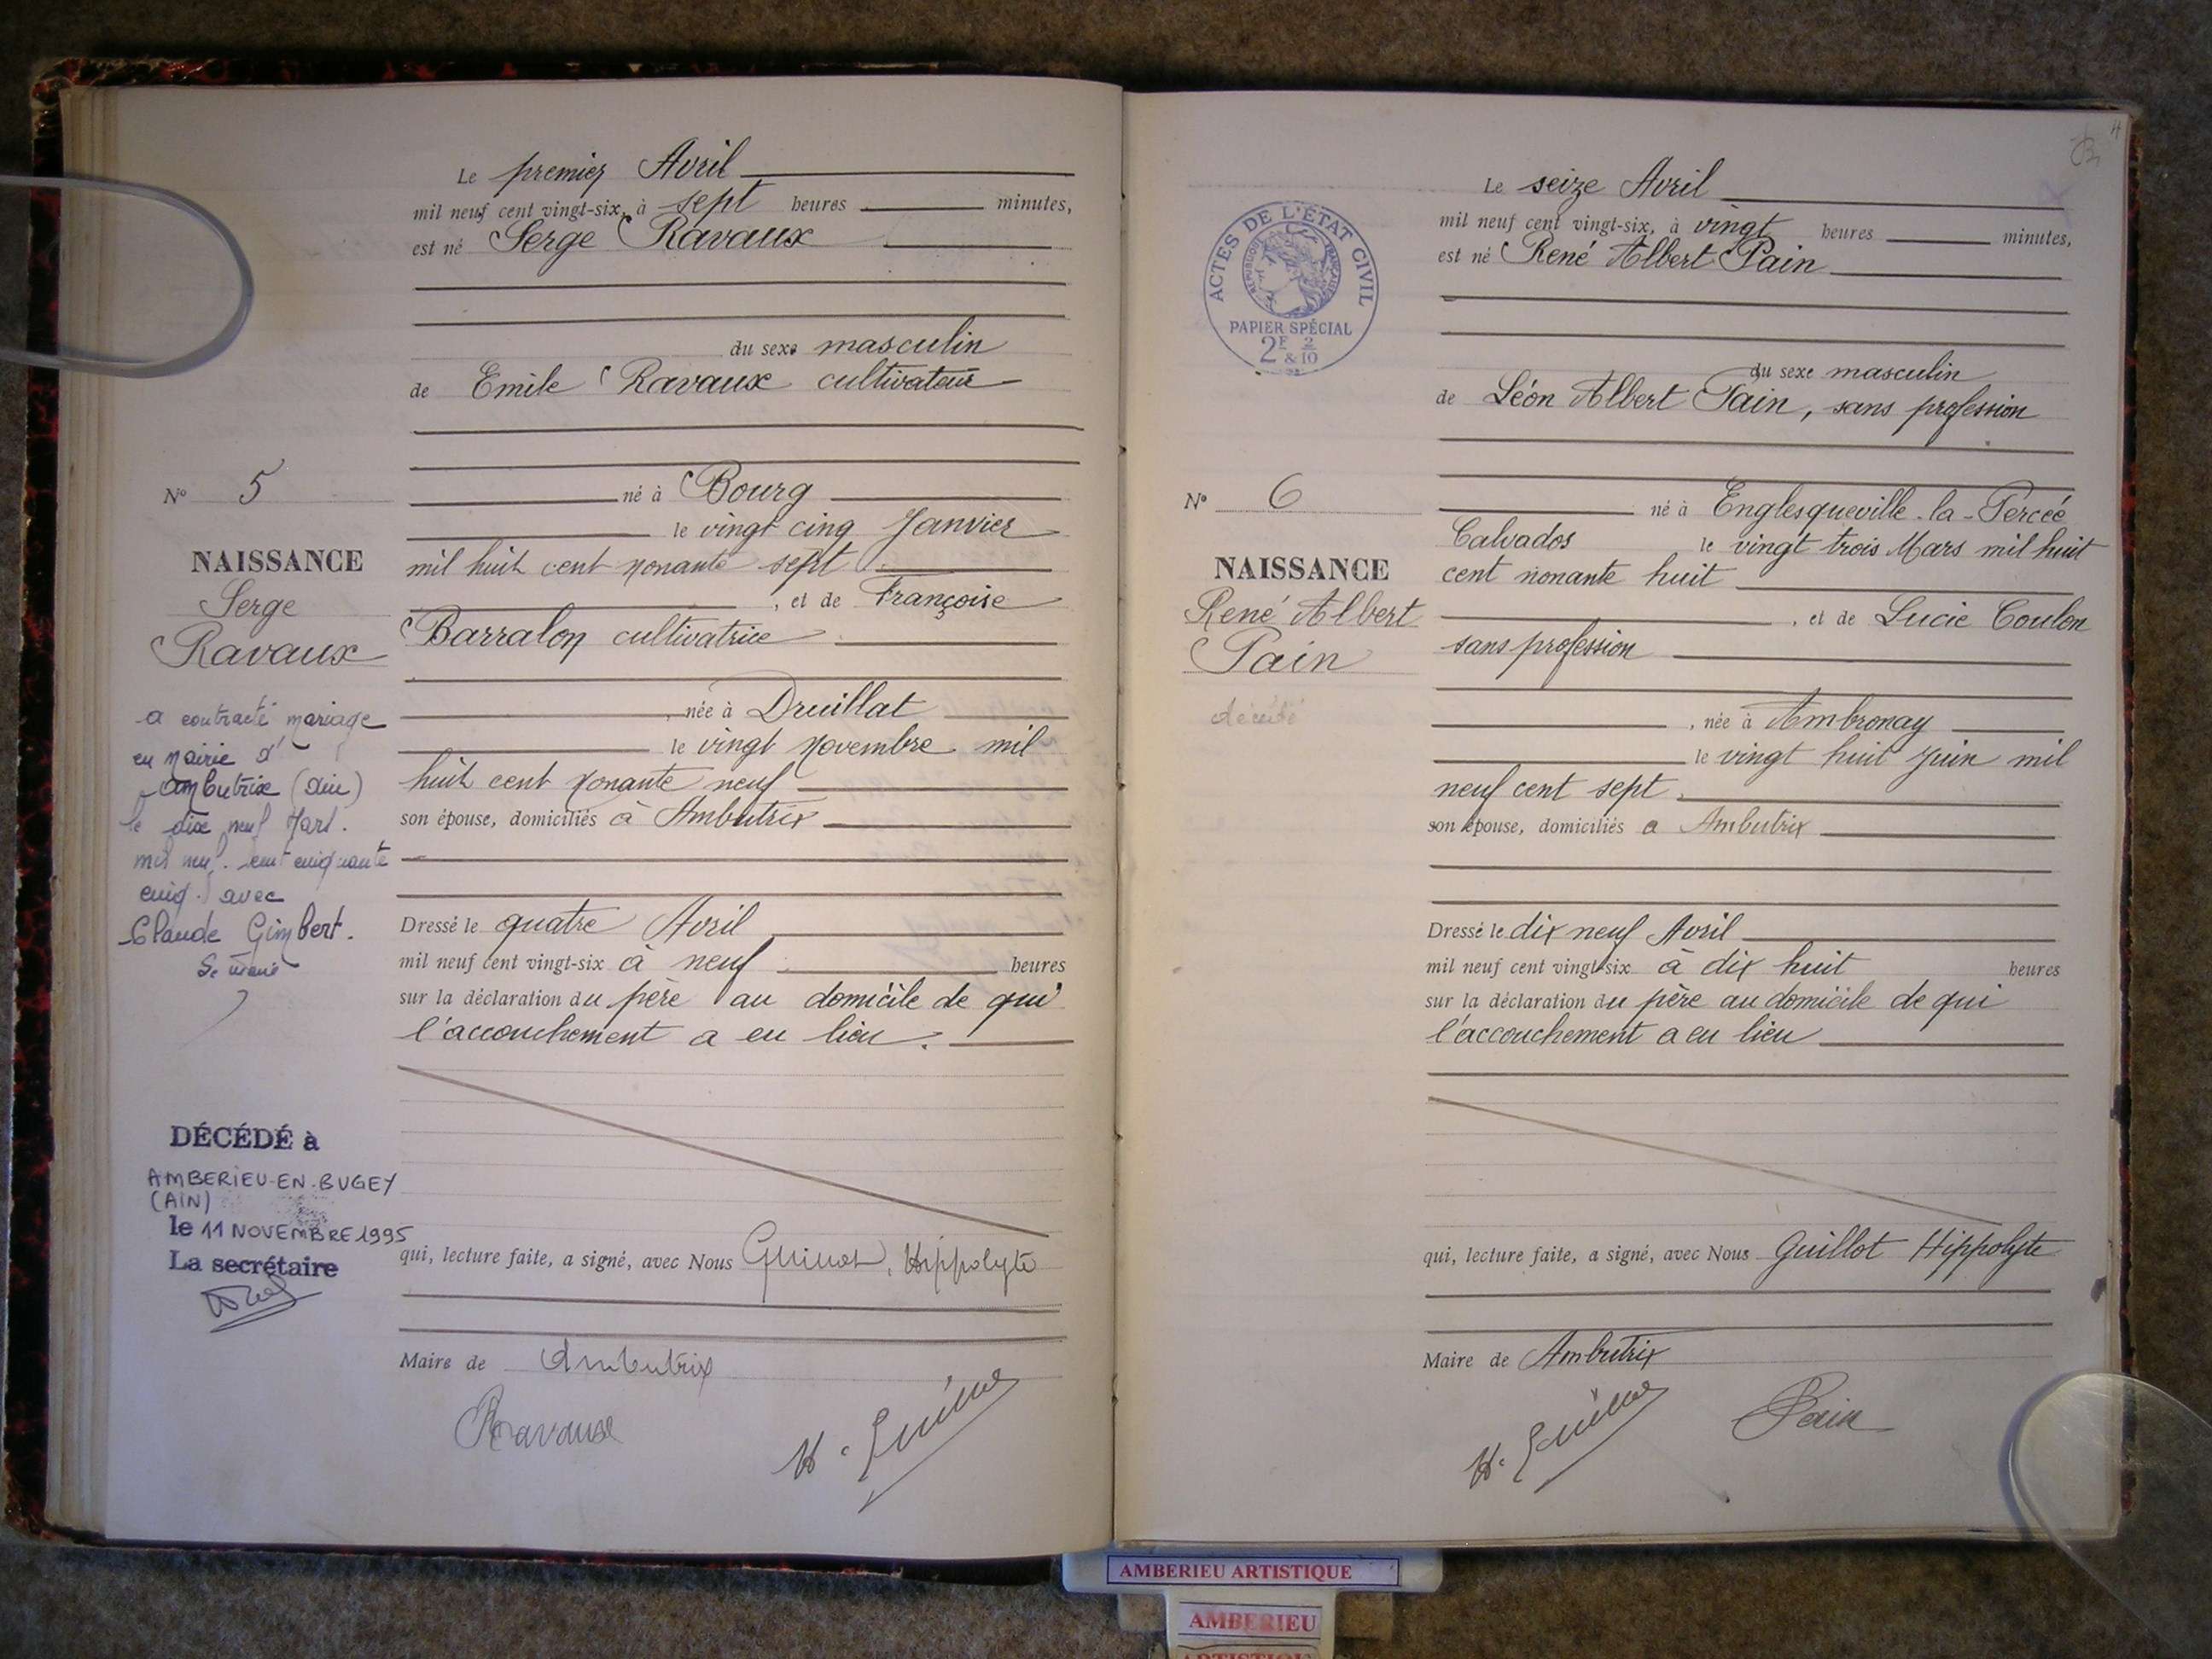 Le premier Avril
mil neuf cent vingt-six, à sept heures minutes,
est né Serge Ravaux
du sexe masculin
de Emile Ravaux cultivateur
né à Bourg
le vingt cinq Janvier
mil huit cent nonante sept
, et de Françoise
Barralon cultivatrice
, née à Druillat
le vingt novembre mil
huit cent nonante neuf
son épouse, domiciliés à Ambutrix
Dressé le quatre Avril
mil neuf cent vingt-six à neuf heures
sur la déclaration du père au domicile de qui
l'accouchement a eu lieu.
qui, lecture faite, a signé, avec Nous Guillot, Hippolyte
Maire de Ambutrix
Ravaux
N° 5
NAISSANCE
Serge
Ravaux
a contracté mariage
en mairie d'
Ambutrix (Ain)
le dix neuf Mars.
mil neuf. cent cinquante
cinq. avec
Claude Gimbert.
DÉCÉDÉ à
AMBERIEU-EN-BUGEY
(AIN)
le 11 NOVEMBRE 1995
La secrétaire
4
Le seize Avril
mil neuf cent vingt-six, à vingt heures minutes,
est né René Albert Pain
du sexe masculin
de Léon Albert Pain, sans profession
né à Englesqueville-la-Percée
Calvados le vingt trois Mars mil huit
cent nonante huit
, et de Lucie Coulon
sans profession
, née à Ambronay
le vingt huit juin mil
neuf cent sept
son épouse, domiciliés a Ambutrix
Dressé le dix neuf Avril
mil neuf cent vingt-six à dix huit heures
sur la déclaration du père au domicile de qui
l'accouchement a eu lieu
qui, lecture faite, a signé, avec Nous Guillot Hippolyte
Maire de Ambutrix
Pain
ACTES DE L'ÉTAT CIVIL
RÉPUBLIQUE FRANÇAISE
PAPIER SPÉCIAL
2F 2
& 10
N° 6
NAISSANCE
René Albert
Pain
décédé
AMBERIEU ARTISTIQUE
AMBERIEU
ARTISTIQUE